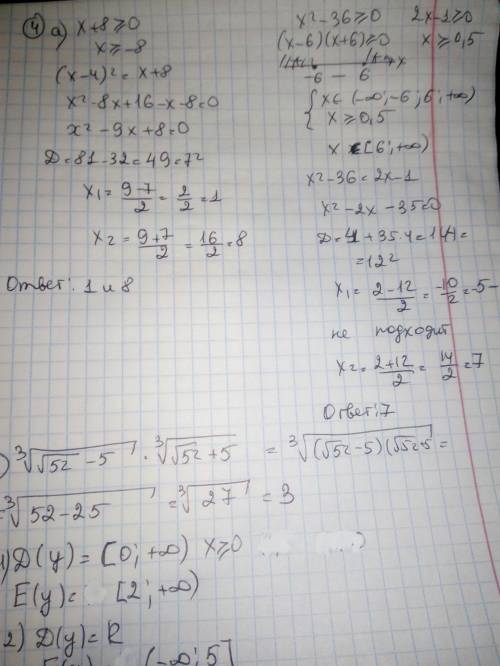 ④ а) x+8⩾0
x⩾-8
(x-4)² = x+8
x²-8x+16-x-8=0
x²-9x+8=0
D=81-32=49=7²
x₁ = (9-7)/2 = 2/2 = 1
x₂ = (9+7)/2 = 16/2 = 8
Ответ: 1 и 8
x²-36⩾0 2x-1⩾0
(x-6)(x+6)⩾0 x⩾0,5
-6 − 6 x
{ x∈ (-∞;-6; 6; +∞)
x⩾0,5
x ∈ [6; +∞)
x²-36=2x-1
x²-2x-35=0
D=4+35·4=144=
=12²
x₁= (2-12)/2 = -10/2 = -5 -
не подходит
x₂= (2+12)/2 = 14/2 = 7
Ответ: 7
) ∛(√52 -5) · ∛(√52+5) = ∛((√52-5)(√52+5 =
= ∛(52-25) = ∛27 = 3
1) D(y) = [0; +∞) x⩾0
E(y)= [2; +∞)
2) D(y)=R
E(y)= (-∞; 5]